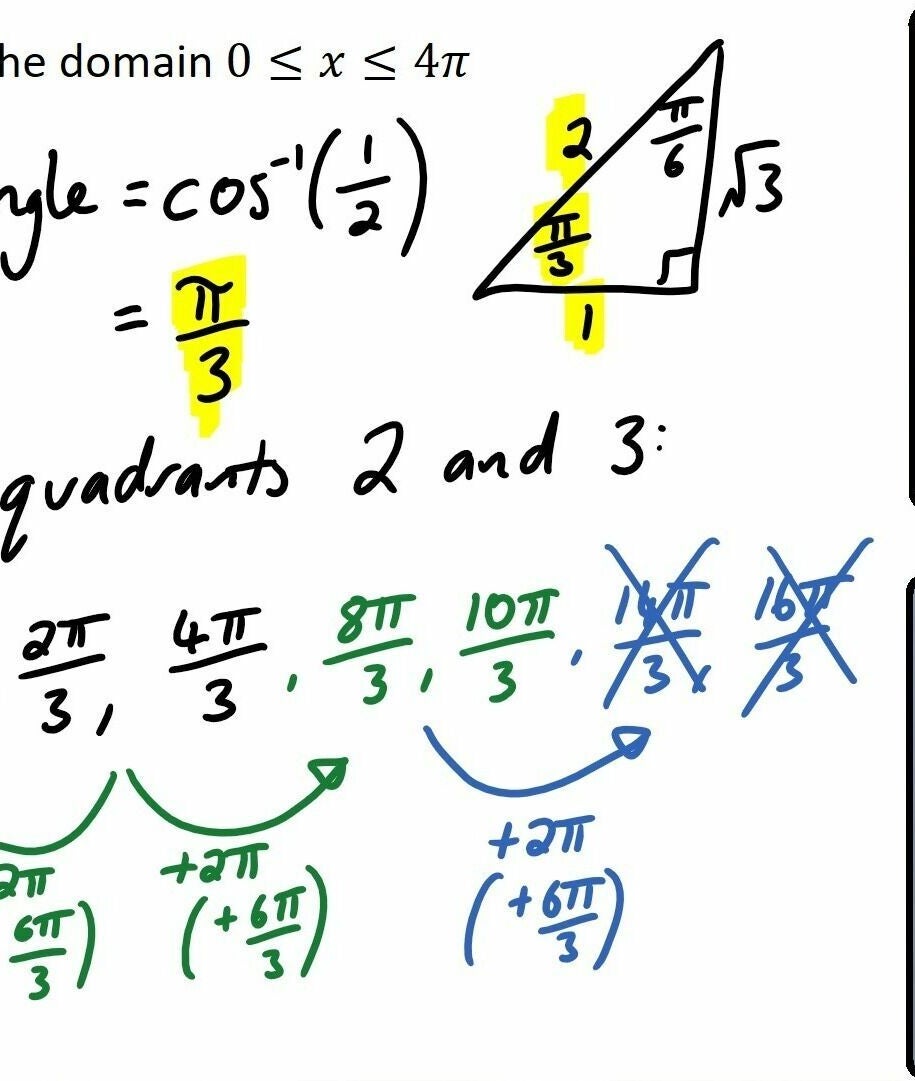 he domain 0 ≤ x ≤ 4π
ngle = cos⁻¹(1/2)
= π/3
2
π/6
√3
π/3
1
quadrants 2 and 3:
2π/3, 4π/3, 8π/3, 10π/3, 14π/3, 16π/3
2π +2π +2π
6π/3) (+6π/3) (+6π/3)